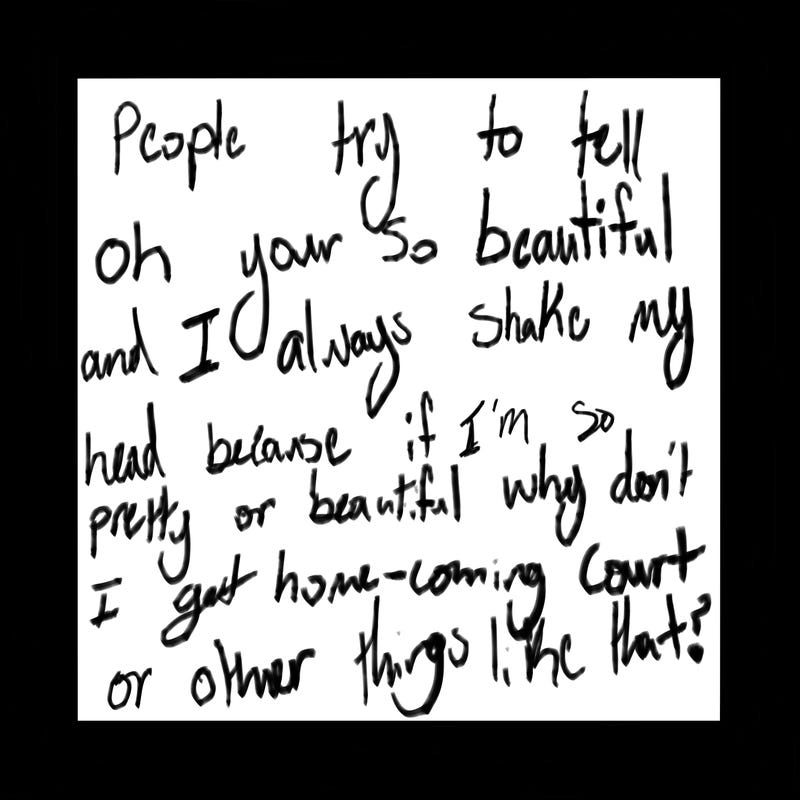 People try to tell
oh your so beautiful
and I always shake my
head because if I'm so
pretty or beautiful why don't
I get home-coming court
or other things like that?